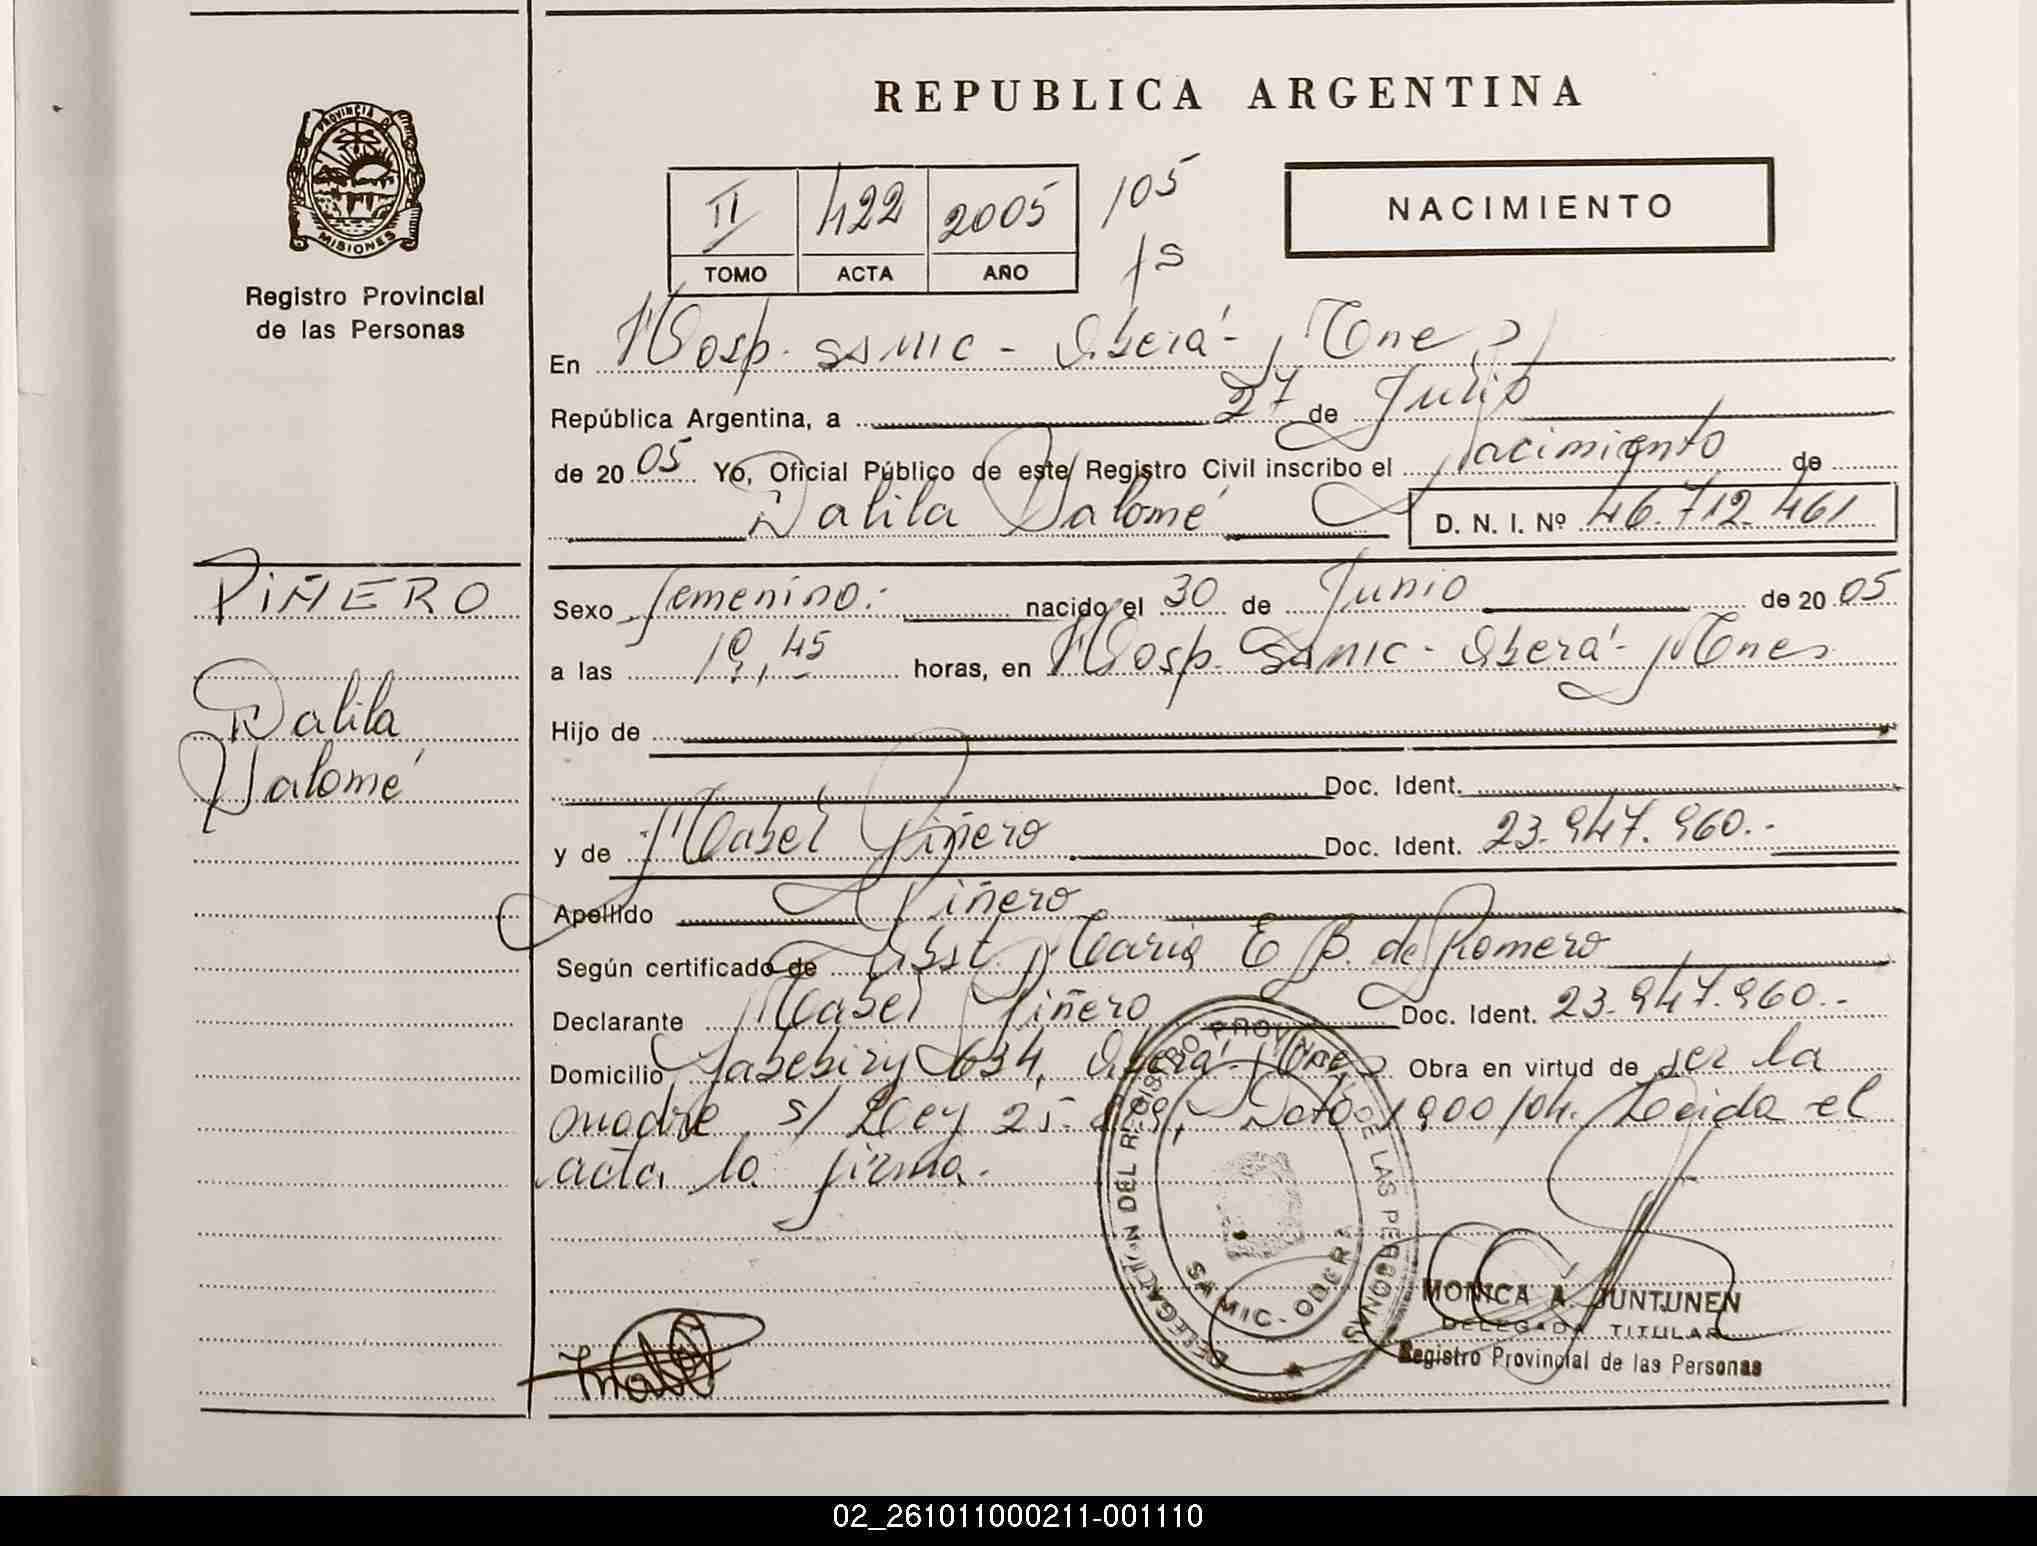 REPUBLICA ARGENTINA
PROVINCIA DE
MISIONES
Registro Provincial
de las Personas
II 422 2005
TOMO ACTA AÑO
105
fs
NACIMIENTO
En Hosp. SAMIC - Oberá - Mnes
República Argentina, a 27 de Julio
de 2005 Yo, Oficial Público de este Registro Civil inscribo el Nacimiento de
Dalila Salomé D. N. I. Nº 46.712.461
PIÑERO
Dalila
Salomé
Sexo femenino.- nacido el 30 de Junio de 2005
a las 19,45 horas, en Hosp. SAMIC - Oberá - Mnes
Hijo de
Doc. Ident.
y de Mabel Piñero Doc. Ident. 23.947.960.-
Apellido Piñero
Según certificado de Obst. María E B. de Romero
Declarante Mabel Piñero Doc. Ident. 23.947.960.-
Domicilio Yabebiry 634, Oberá - Mnes Obra en virtud de ser la
madre s/ Ley 25. Dcto 1900/04. Leida el
acta la firma.
DELEGACIÓN DEL REGISTRO PROVINCIAL DE LAS PERSONAS
SAMIC - OBERA
MONICA A. JUNTUNEN
DELEGADA TITULAR
Registro Provincial de las Personas
02_261011000211-001110